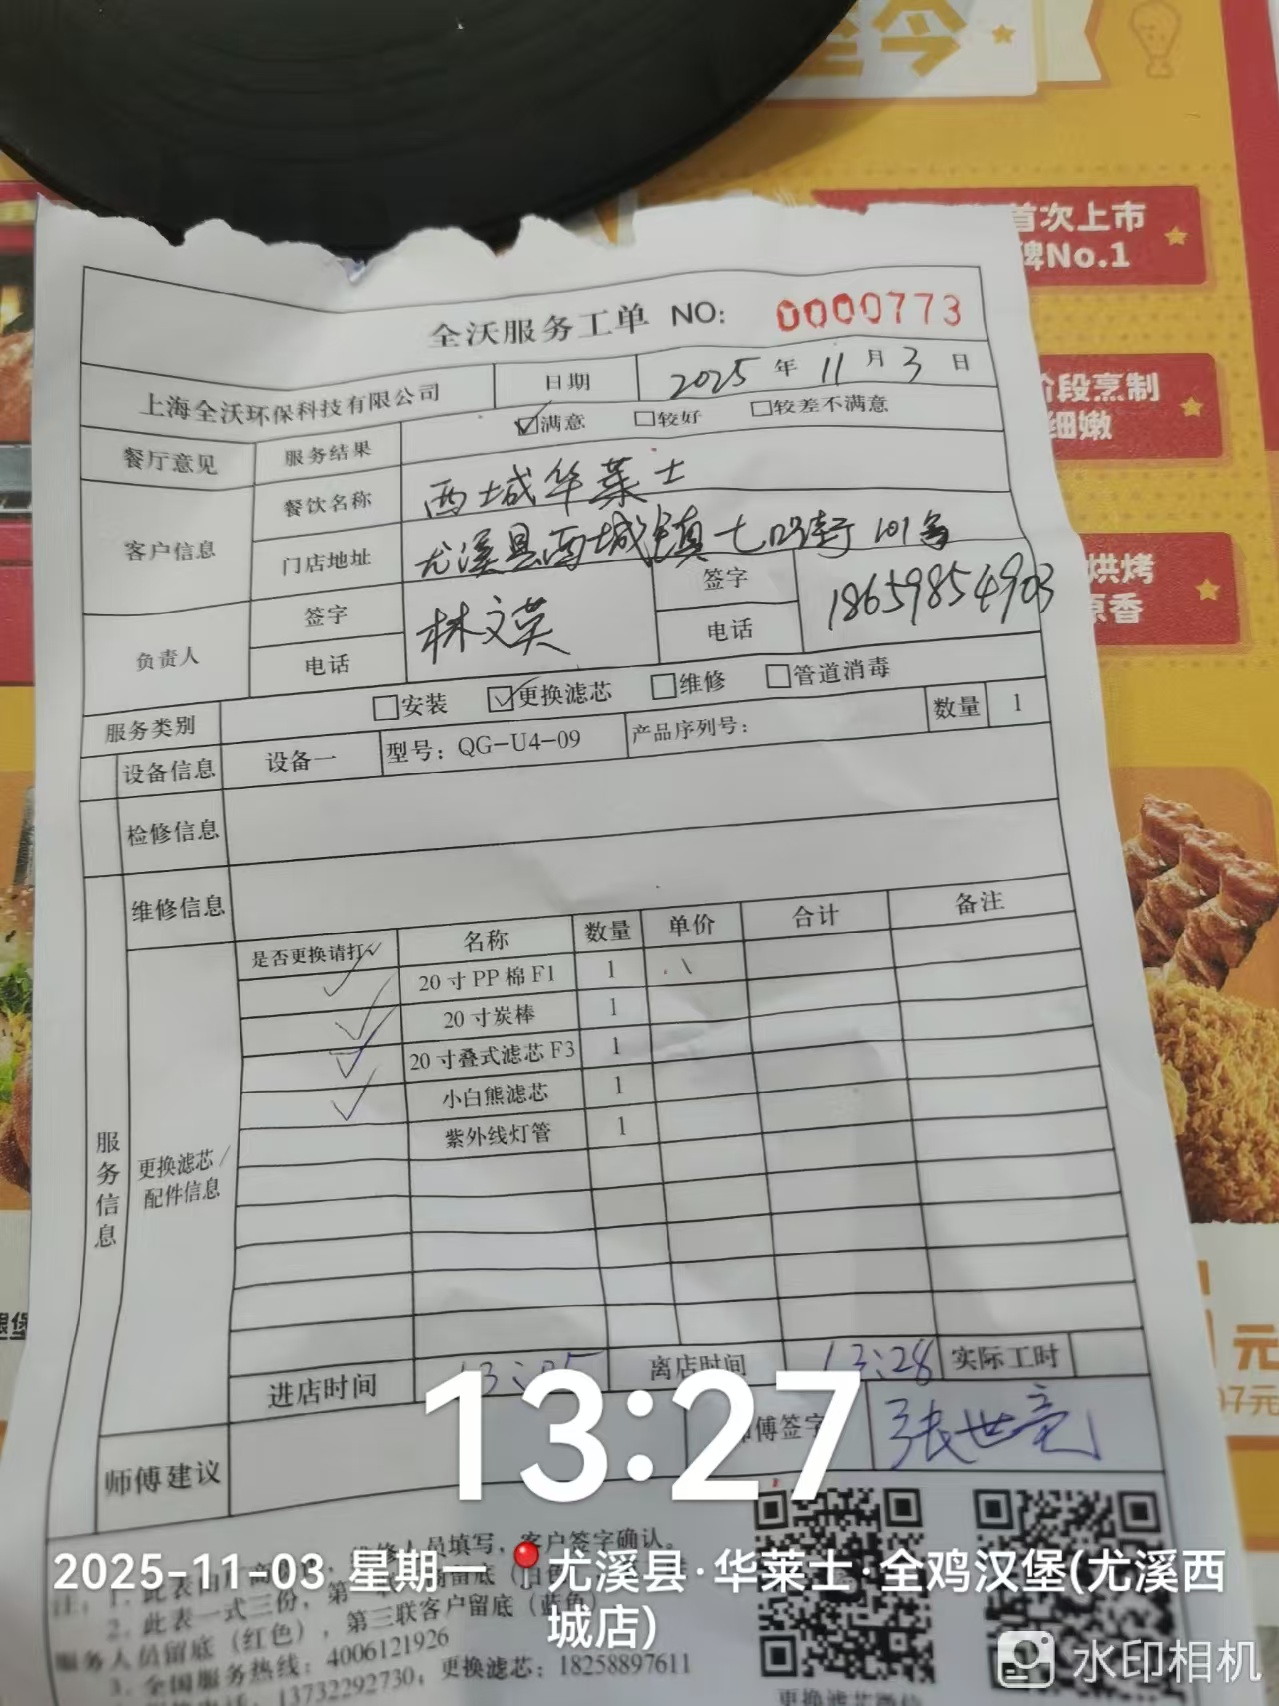 至今
首次上市
牌No.1
阶段烹制
细嫩
烘烤
原香
全沃服务工单 NO: 0000773
上海全沃环保科技有限公司 日期 2025 年 11 月 3 日
餐厅意见 服务结果 ☑满意 □较好 □较差不满意
客户信息 餐饮名称 西城华莱士
门店地址 尤溪县西城镇七口街101号
负责人 签字 林文英 签字
电话 电话 18659854903
服务类别 □安装 ☑更换滤芯 □维修 □管道消毒
设备信息 设备一 型号: QG-U4-09 产品序列号: 数量 1
检修信息
维修信息
服务信息
更换滤芯/
配件信息
是否更换请打✓ 名称 数量 单价 合计 备注
✓ 20寸PP棉F1 1
✓ 20寸炭棒 1
✓ 20寸叠式滤芯F3 1
✓ 小白熊滤芯 1
紫外线灯管 1
进店时间 离店时间 13:28 实际工时
师傅建议 师傅签字 张世亮
13:27
员填写,客户签字确认。
2. 此表一式三份,第
员留底(红色),第三联客户留底(蓝色)
3. 全国服务热线: 4006121926
13732292730; 更换滤芯: 18258897611
2025-11-03 星期一 尤溪县·华莱士·全鸡汉堡(尤溪西
城店)
水印相机
元